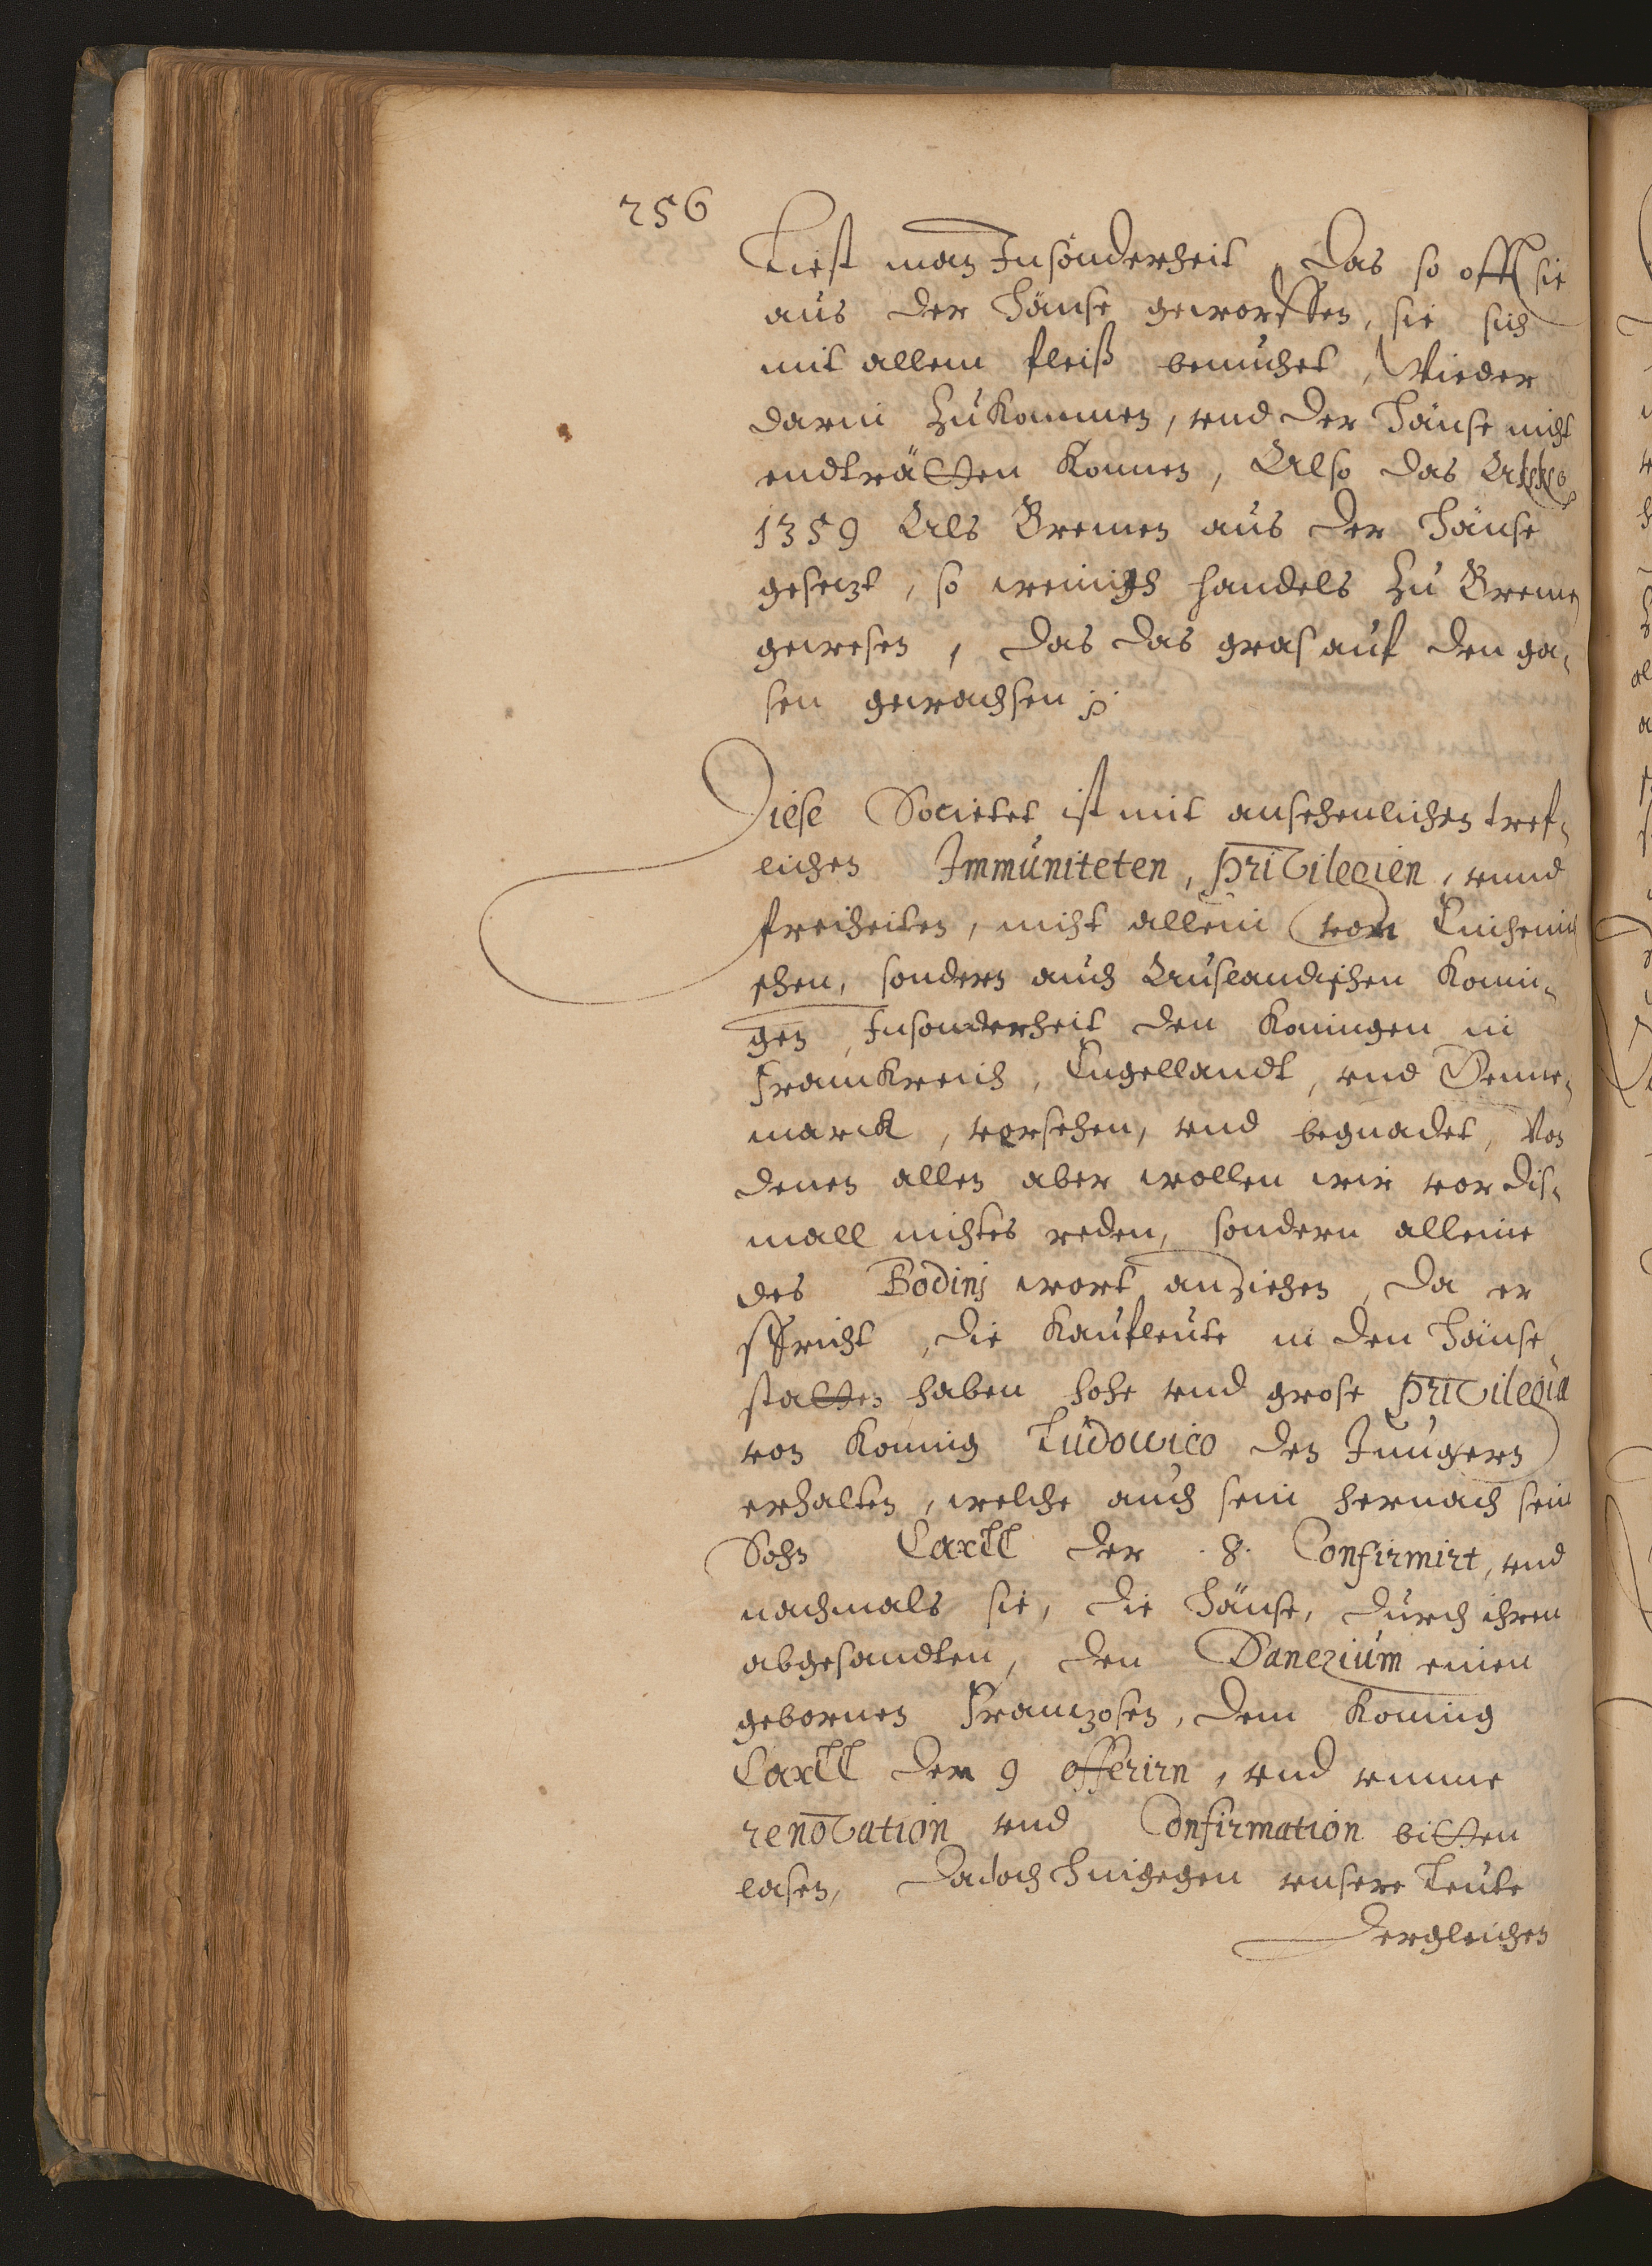 256
Liest man Insonderheit, Das so offt sie
aus der Hänse geworffen, sie sich
mit allem fleiß bemuhet, Wieder
darin zukommen, vnd der Hänse nicht
endträtten konnen, Also das
1359 Als Bremen aus der Hänse
gesetzt, so wenigh handels zu Bremen
gewesen, das das gras auf den ga¬
sen gewachsen
Diese Societet ist mit ansehenlichen tref¬
lichen Immuniteten, Privilegien, vnnd
freiheiten, nicht allein von Einheimi
schen, sondern auch Auslandischen Konin¬
gen, Insonderheit den Koningen in
Franckreich, Engellandt, vnd Denne¬
marck, versehen, vnd begnadet, Von
denen allen aber wollen wir vor dis¬
mall nichtes reden, sondern alleine
des Bodinj wort anziehen, Da er
spricht, die Kaufleute in den Hänse
stätten haben hohe vnd grose Privilegia
von Koning Ludowico den Jungern
erhalten, welche auch sein hernach sein
Sohn Carll der .8. Confirmirt, vnd
nachmals sie, die Hänse, durch ihren
abgesandten, den Danezium einen
gebornen Franzosen, dem Koning
Carll der 9 offerirn, vnd vmme
renovation vnd Confirmation bitten
lasen, Dadoch hingegen vnsere Leute
dergleichen